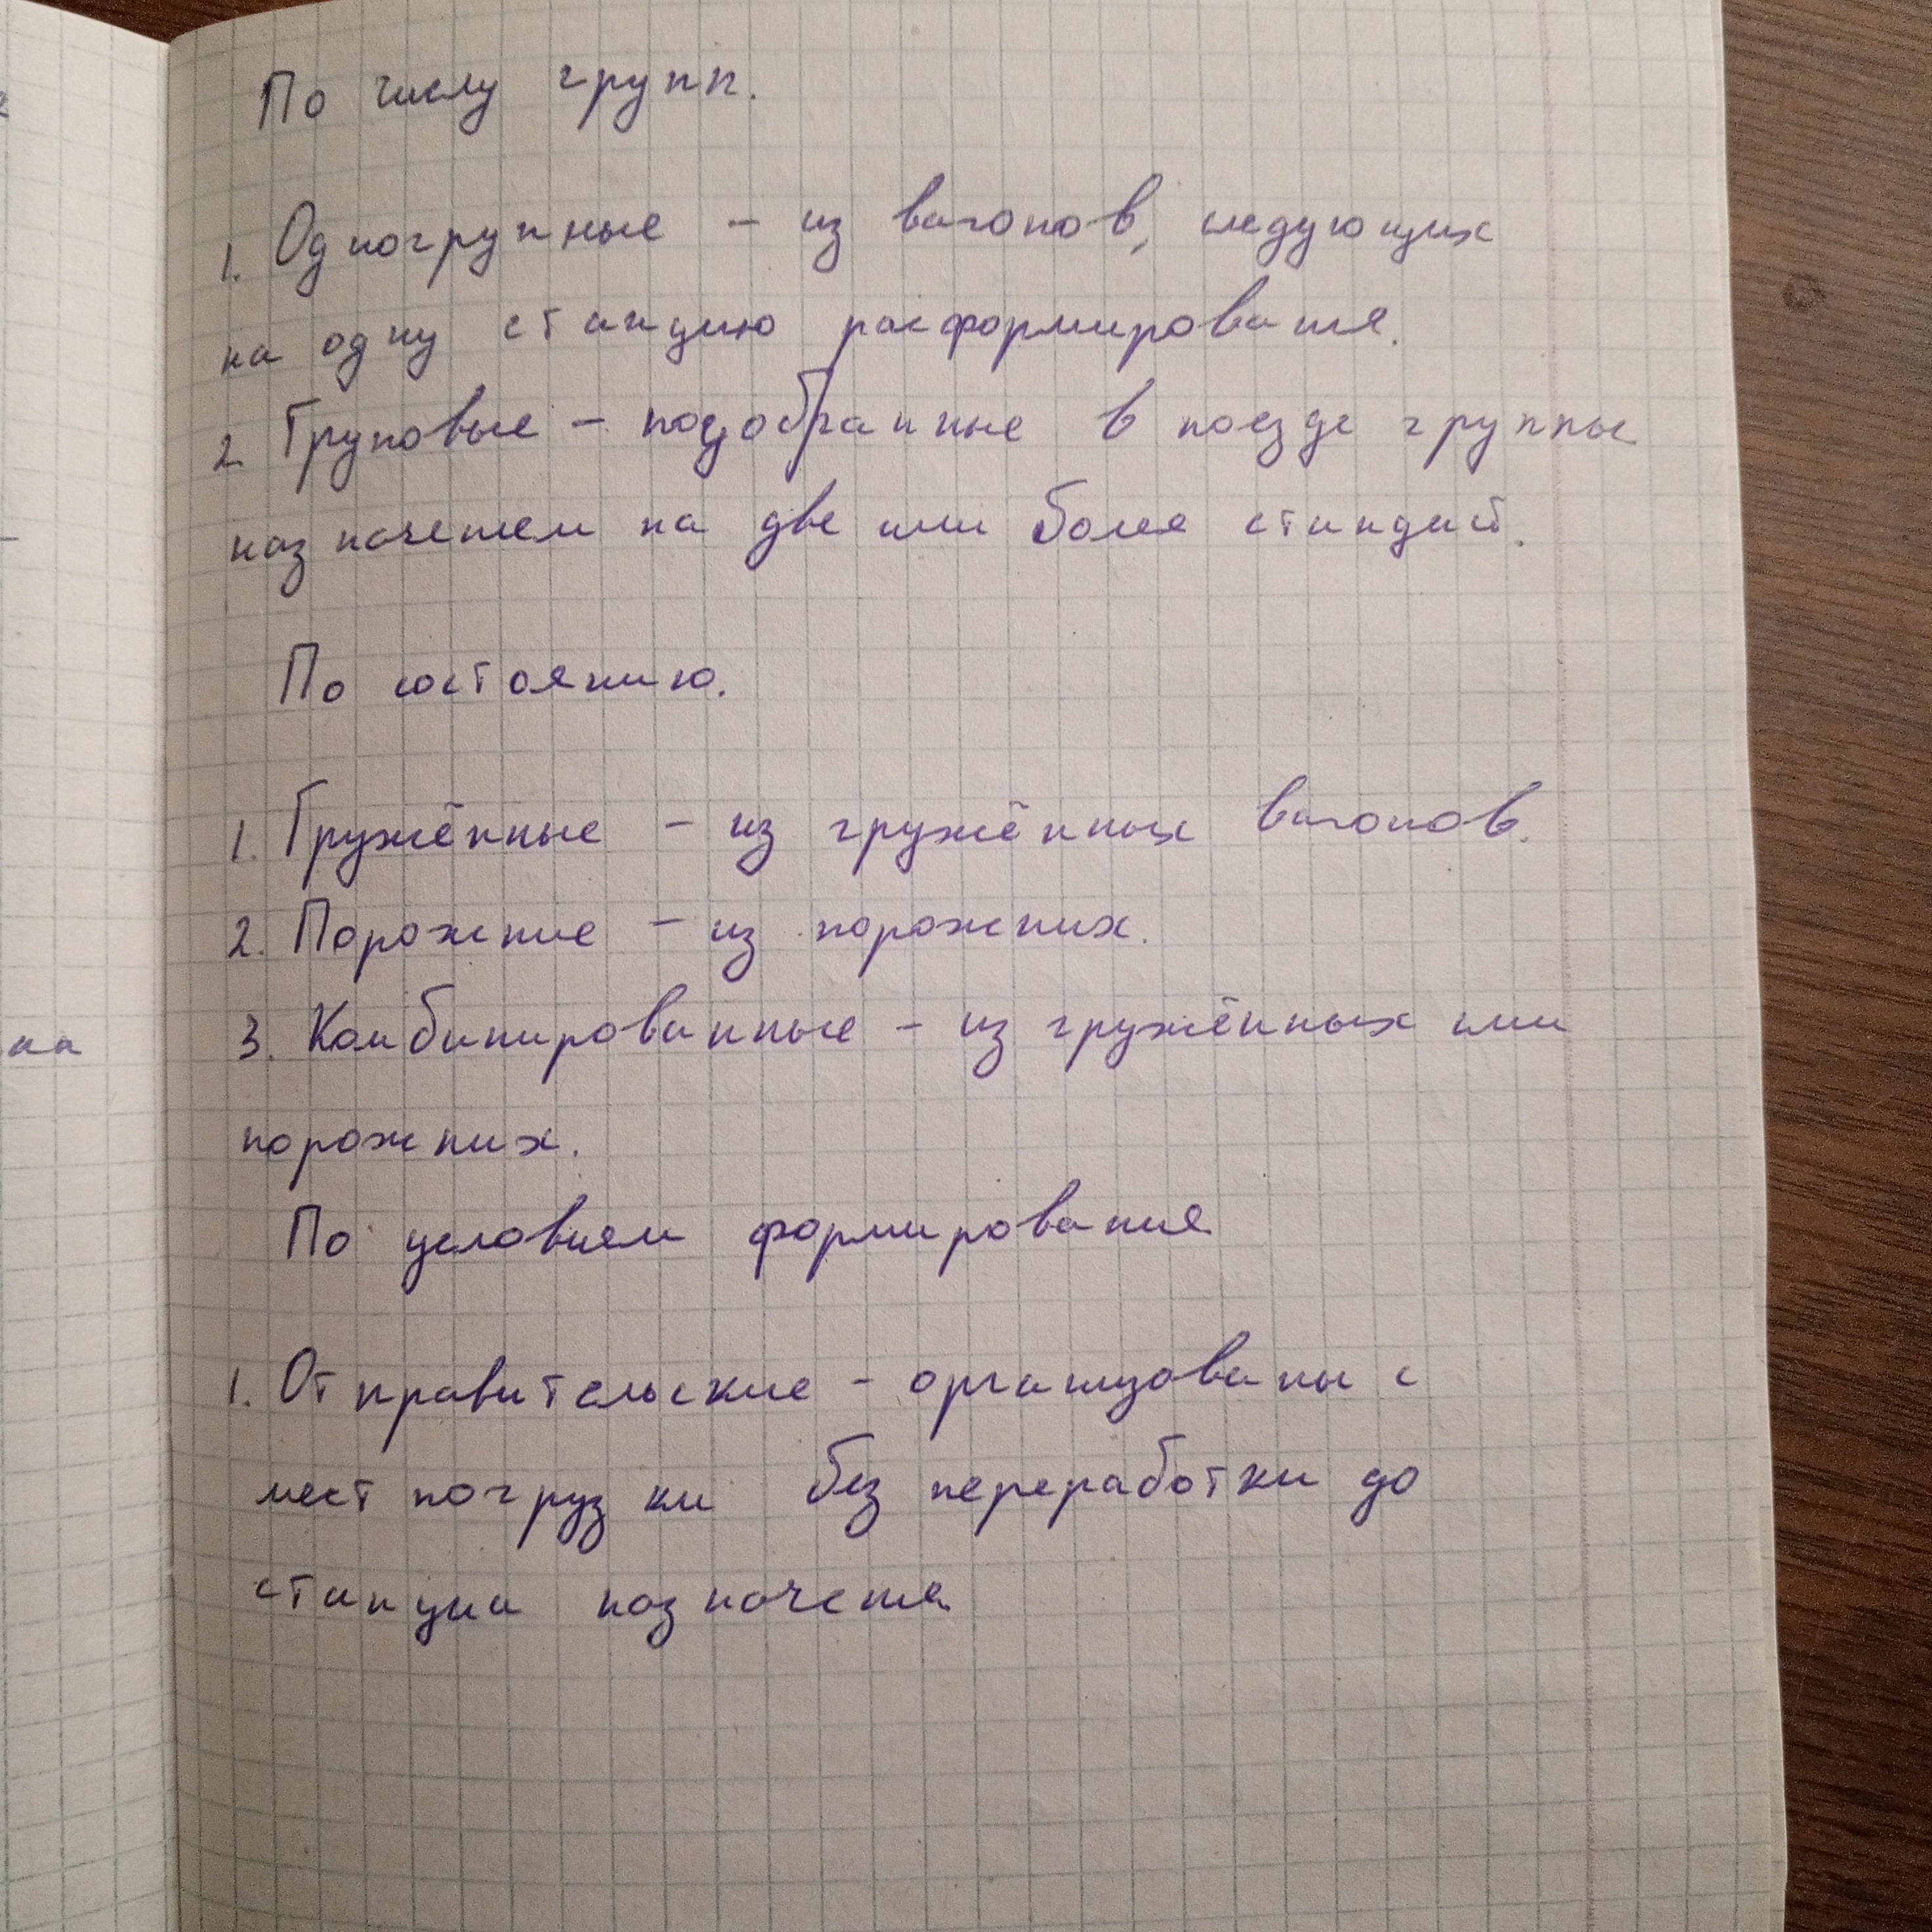 По числу групп.
1. Одногрупные - из вагонов, следующих
на одну станцию расформирования.
2. Груповые - подобранные в поезде группы
назначением на две или более станций.
По состоянию.
1. Гружённые - из гружённых вагонов.
2. Порожние - из порожних.
3. Комбинированные - из гружённых или
порожних.
на
По условиям формирования
1. Отправительские - организованы с
мест погрузки без переработки до
станции назначения